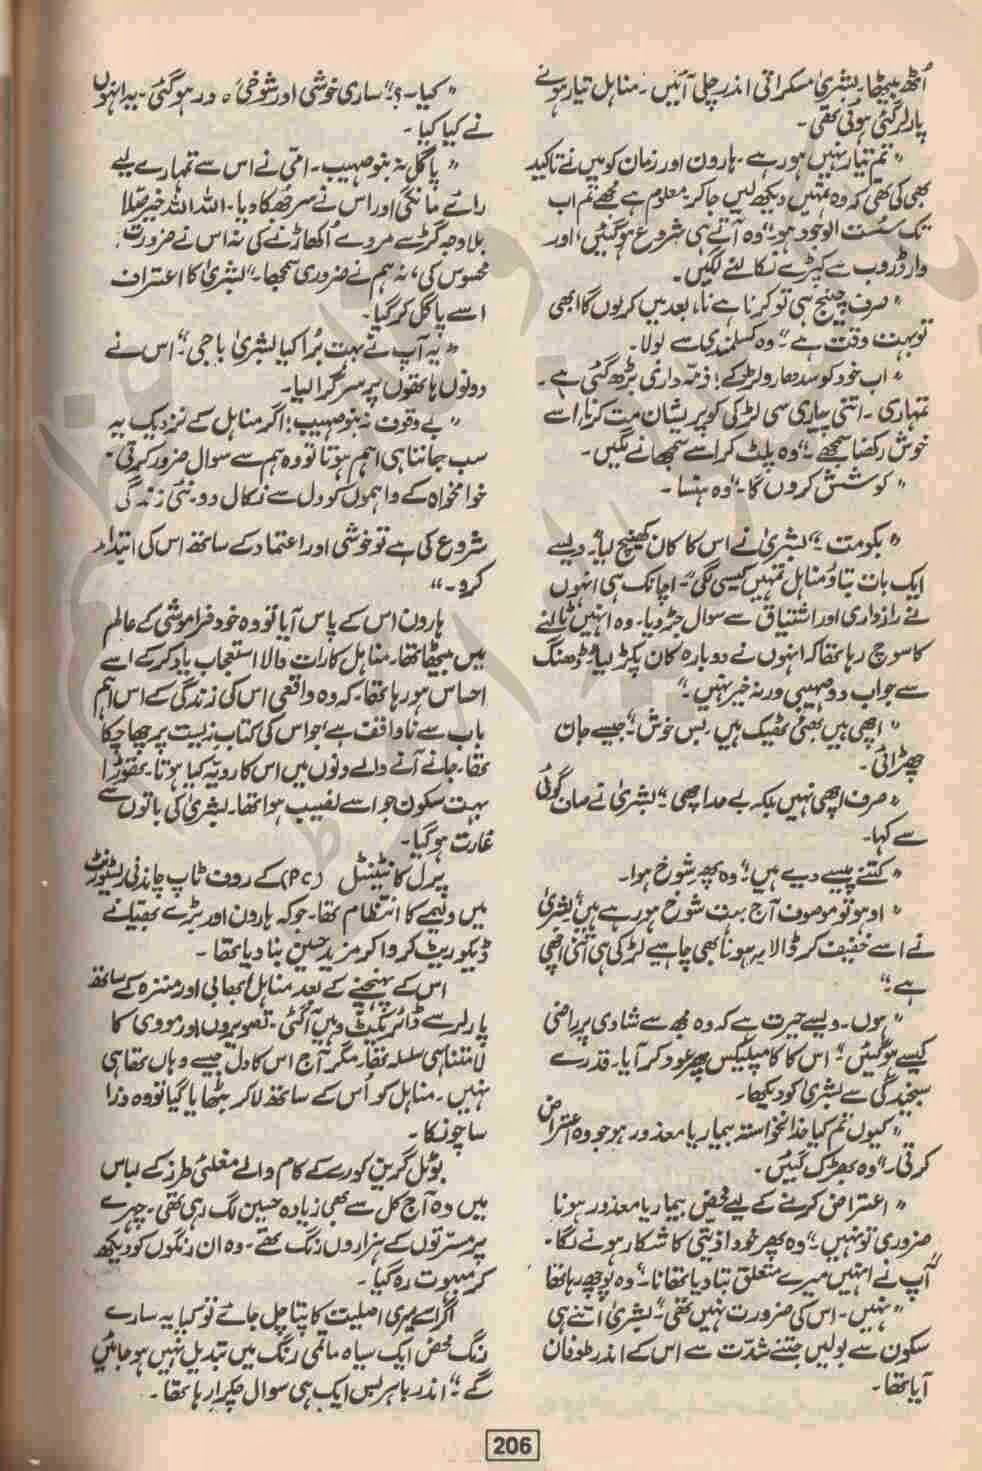 اُٹھ بیٹھا۔ بشریٰ مسکراتی اندر چلی آئیں۔ مناہل تیار ہونے
پارلر گئی ہوئی تھی۔
”تم تیار نہیں ہو رہے۔ ہارون اور زمان کو میں نے تاکید
بھی کی تھی کہ وہ تمہیں دیکھ لیں جا کر۔ معلوم ہے مجھے تم اب
تک سُست الوجود ہو۔“ وہ آتے ہی شروع ہو گئیں، اور
وارڈروب سے کپڑے نکالنے لگیں۔
”صرف چینج ہی تو کرنا ہے نا، بعد میں کر لوں گا ابھی
تو بہت وقت ہے۔“ وہ کسلمندی سے بولا۔
”اب خود کو سدھارو لڑکے! ذمہ داری بڑھ گئی ہے۔
تمہاری۔ اتنی پیاری سی لڑکی کو پریشان مت کرنا، اسے
خوش رکھنا سمجھے۔“ وہ پلٹ کر اسے سمجھانے لگیں۔
”کوشش کروں گا۔“ وہ ہنسا۔
”بکو مت۔“ بشریٰ نے اس کا کان کھینچ لیا۔ ”ویسے
ایک بات بتاؤ مناہل تمہیں کیسی لگی“۔ اچانک ہی انہوں
نے رازداری اور اشتیاق سے سوال جڑ دیا۔ وہ انہیں ٹالنے
کا سوچ رہا تھا کہ انہوں نے دوبارہ کان پکڑ لیا ”ڈھنگ
سے جواب دو صہیبی ورنہ خیر نہیں۔“
”اچھی ہیں بھئی ٹھیک ہیں۔ بس خوش۔“ جیسے جان
چھڑائی۔
”صرف اچھی نہیں بلکہ بے حد اچھی۔“ بشریٰ نے صاف گوئی
سے کہا۔
”کتنے پیسے دیے ہیں؟“ وہ پھر شوخ ہوا۔
”اوہو تو موصوف آج بہت شوخ ہو رہے ہیں“ بشریٰ
نے اسے خفیف کر ڈالا۔ ”پر ہونا بھی چاہیے لڑکی ہی اتنی اچھی
ہے۔“
”ہوں۔ ویسے حیرت ہے کہ وہ مجھ سے شادی پر راضی
کیسے ہو گئیں۔“ اس کا کامپلیکس پھر عود کر آیا۔ قدرے
سنجیدگی سے بشریٰ کو دیکھا۔
”کیوں تم کیا خدانخواستہ بیمار یا معذور ہو جو وہ اعتراض
کرتی۔“ وہ بھڑک گئیں۔
”اعتراض کرنے کے لیے محض بیمار یا معذور ہونا
ضروری تو نہیں۔“ وہ پھر خود اذیتی کا شکار ہونے لگا۔
”آپ نے انہیں میرے متعلق بتا دیا تھا نا۔“ وہ پوچھ رہا تھا
”نہیں۔ اس کی ضرورت نہیں تھی۔“ بشریٰ اتنے ہی
سکون سے بولیں جتنے شدّت سے اس کے اندر طوفان
آیا تھا۔
”کیا۔؟“ ساری خوشی اور شوخی ہ ور ہو گئی۔ یہ انہوں
نے کیا کیا۔
”پاگل نہ بنو صہیب۔ امّی نے اس سے تمہارے لیے
رائے مانگی اور اس نے سر جھکا دیا۔ اللہ اللہ خیر صلا
بلاوجہ گڑے مردے اُکھاڑنے کی نہ اس نے ضرورت
محسوس کی، نہ ہم نے ضروری سمجھا۔“ بشریٰ کا اعتراف
اسے پاگل کر گیا۔
”یہ آپ نے بہت بُرا کیا بشریٰ باجی۔“ اس نے
دونوں ہاتھوں پر سر گرا لیا۔
”بے وقوف نہ بنو صہیب! اگر مناہل کے نزدیک یہ
سب جاننا ہی اہم ہوتا تو وہ ہم سے سوال ضرور کرتی۔
خوامخواہ کے واہموں کو دل سے نکال دو۔ نئی زندگی
شروع کی ہے تو خوشی اور اعتماد کے ساتھ اس کی ابتداء
کرو۔“
ہارون اس کے پاس آیا تو وہ خود فراموشی کے عالم
میں بیٹھا تھا۔ مناہل کا رات والا استعجاب یاد کر کے اسے
احساس ہو رہا تھا۔ کہ وہ واقعی اس کی زندگی کے اس اہم
باب سے ناواقف ہے، جو اس کی کتاب زیست پر چھا چکا
تھا۔ جانے آنے والے دنوں میں اس کا رویّہ کیا ہوتا۔ تھوڑا
بہت سکون جو اسے نصیب ہوا تھا۔ بشریٰ کی باتوں سے
غارت ہو گیا۔
پرل کانٹینینٹل (Pc) کے روف ٹاپ چاندنی ریسٹورنٹ
میں ولیمے کا انتظام تھا۔ جو کہ ہارون اور بڑے بھیا نے
ڈیکوریٹ کروا کر مزید حسین بنا دیا تھا۔
اس کے پہنچنے کے بعد مناہل بھابی اور منزہ کے ساتھ
پارلر سے ڈائریکٹ وہیں آ گئی۔ تصویروں اور مووی کا
لامتناہی سلسلہ تھا۔ مگر آج اس کا دل جیسے وہاں تھا ہی
نہیں۔ مناہل کو اُس کے ساتھ لا کر بٹھایا گیا تو وہ ذرا
سا چونکا۔
بوٹل گرین کورے کے کام والے مغلئی طرز کے لباس
میں وہ آج کل سے بھی زیادہ حسین لگ رہی تھی۔ چہرے
پر مسرتوں کے ہزاروں رنگ تھے۔ وہ ان رنگوں کو دیکھ
کر مبہوت رہ گیا۔
اگر اسے میری اصلیت کا پتا چل جائے تو کیا یہ سارے
رنگ محض ایک سیاہ ماتمی رنگ میں تبدیل نہیں ہو جائیں
گے“ اندر باہر بس ایک ہی سوال چکرا رہا تھا۔
206